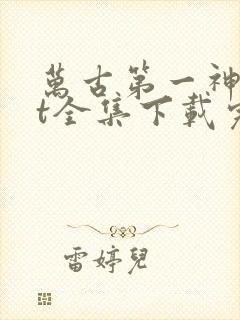 萬古第一神
t全集下載完
雷婷兒